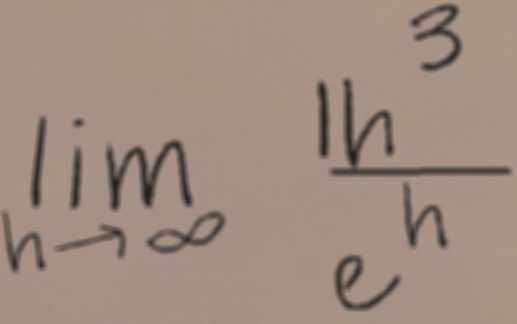 lim h→∞ 1h^3 / e^h